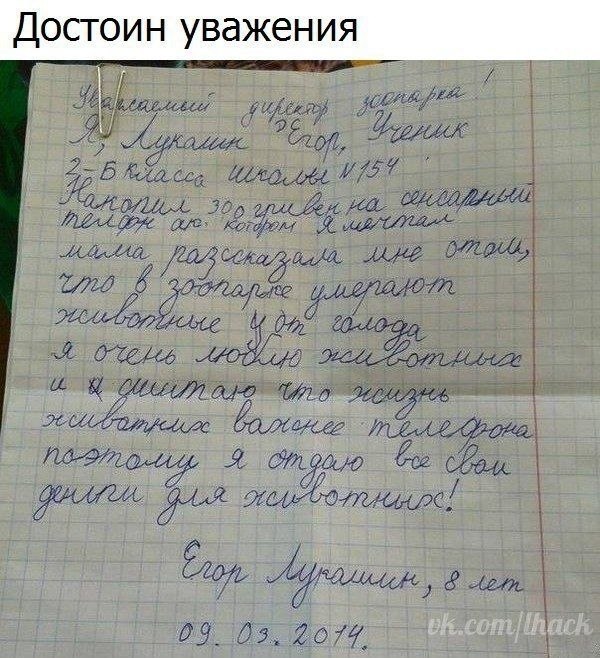 Достоин уважения
Уважаемый директор зоопарка!
Я, Лукашин Егор, Ученик
2-Б класса школы №154
Накопил 300 гривен на сенсарный
телфон о котором я мечтал
мама разсказала мне отом,
что в зоопарке умерают
животные от голода
я очень люблю животных
и сиштаю что жизнь
животних важнее телефона
поэтому я отдаю все свои
деньги для животных!
Егор Лукашин, 8 лет
09.03.2014.
vk.com/lhack